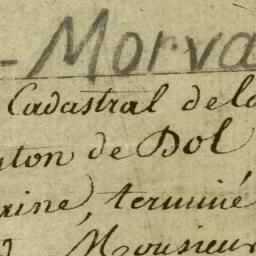 - Morva
Cadastral de la
nton de Dol
rine), terminé
Monsieur